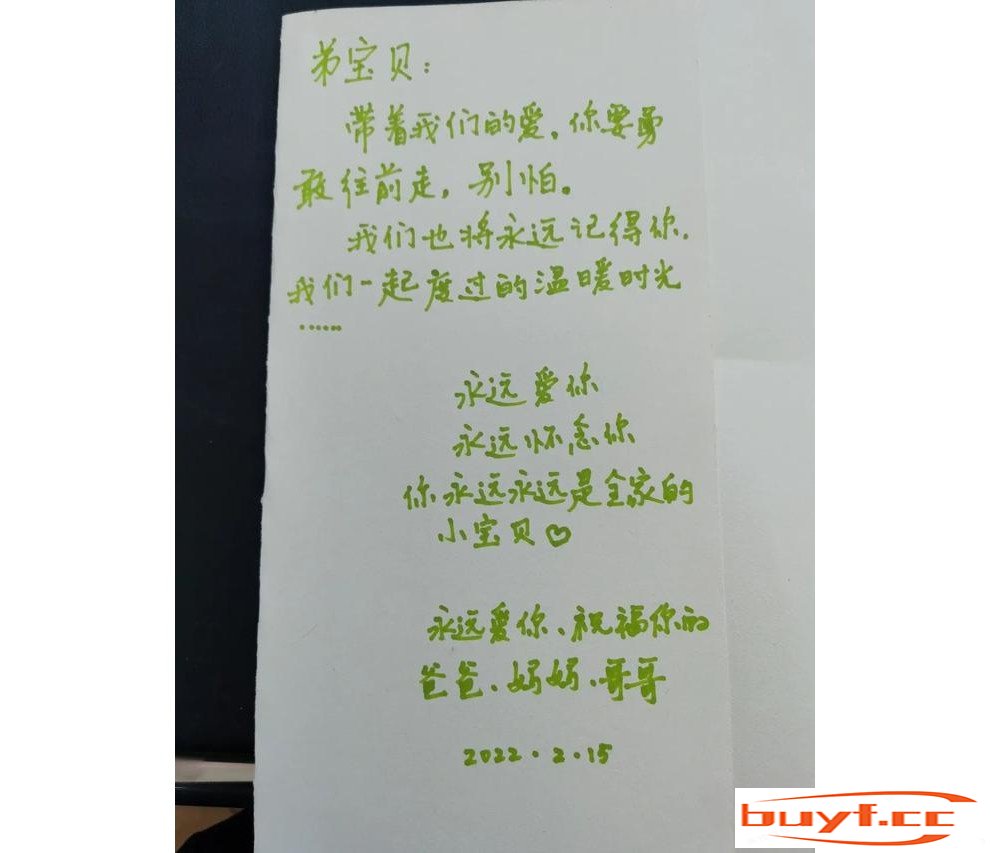 弟宝贝：
带着我们的爱，你要勇
敢往前走，别怕。
我们也将永远记得你，
我们一起度过的温暖时光
……
永远爱你
永远怀念你
你永远永远是全家的
小宝贝♡
永远爱你、祝福你的
爸爸、妈妈、哥哥
2022.2.15
buyf.cc